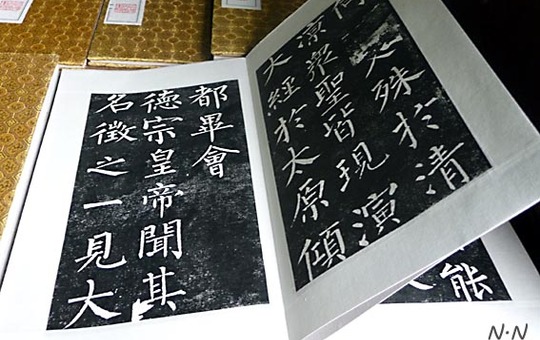 文殊於清
涼眾聖皆現演
大經於太原傾
都畢會
德宗皇帝聞其
名徵之一見大
能
N·N